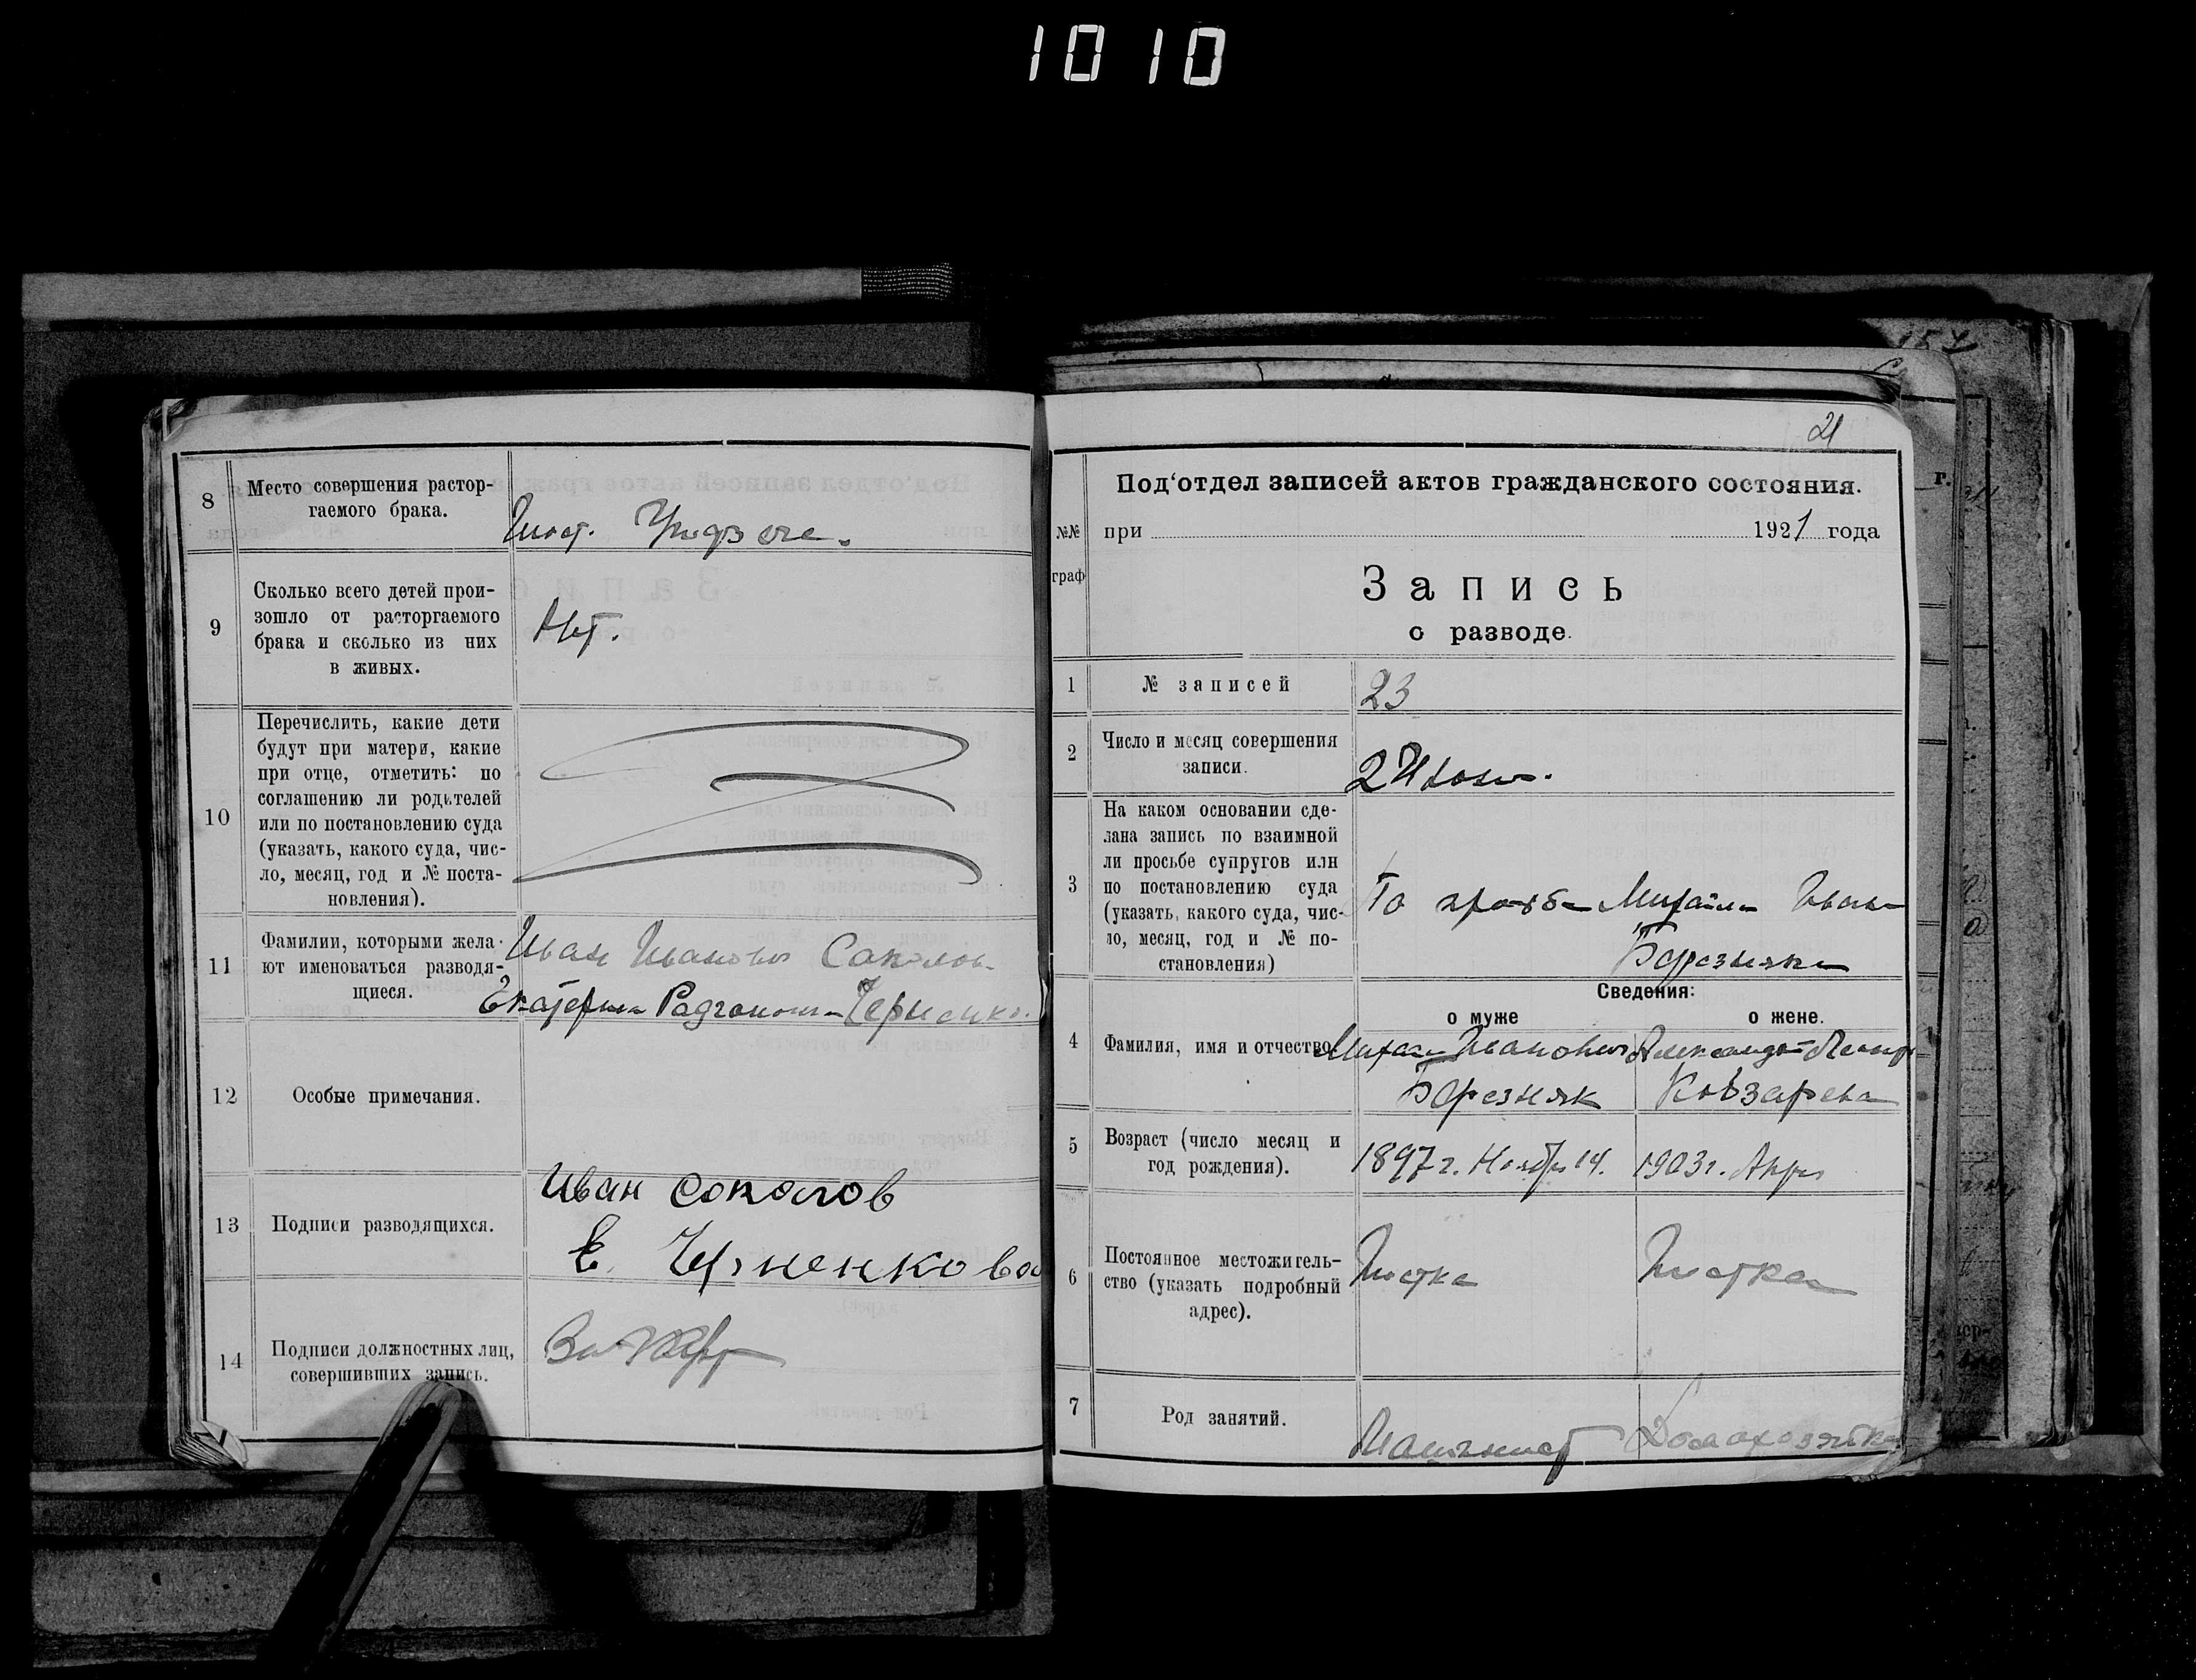 1010
8
Место совершения растор-
гаемого брака.
9
Сколько всего детей прои-
зошло от расторгаемого
брака и сколько из них
в живых.
Нет.
10
Перечислить, какие дети
будут при матери, какие
при отце, отметить: по
соглашению ли родителей
или по постановлению суда
(указать, какого суда, чис-
ло, месяц, год и № поста-
новления).
11
Фамилии, которыми жела-
ют именоваться разводя-
щиеся.
Иван Иванович Соколов
Екатерина
12
Особые примечания.
13
Подписи разводящихся.
Иван Соколов
Е.
14
Подписи должностных лиц,
совершивших запись.
21
Под‘отдел записей актов гражданского состояния.
№№
граф
при 1921 года
Запись
о разводе.
1
№ записей
23
2
Число и месяц совершения
записи.
3
На каком основании сде-
лана запись по взаимной
ли просьбе супругов или
по постановлению суда
(указать, какого суда, чис-
ло, месяц, год и № по-
становления)
По просьбе Михаила
Березняка
Сведения:
о муже
о жене.
4
Фамилия, имя и отчество.
Михаил Иванович
Березняк
Александра
Ковзарева
5
Возраст (число месяц и
год рождения).
1897 г. Ноября 14.
1903 г.
6
Постоянное местожитель-
ство (указать подробный
адрес).
Шостка
Шостка
7
Род занятий.
Машинист
Домохозяйка